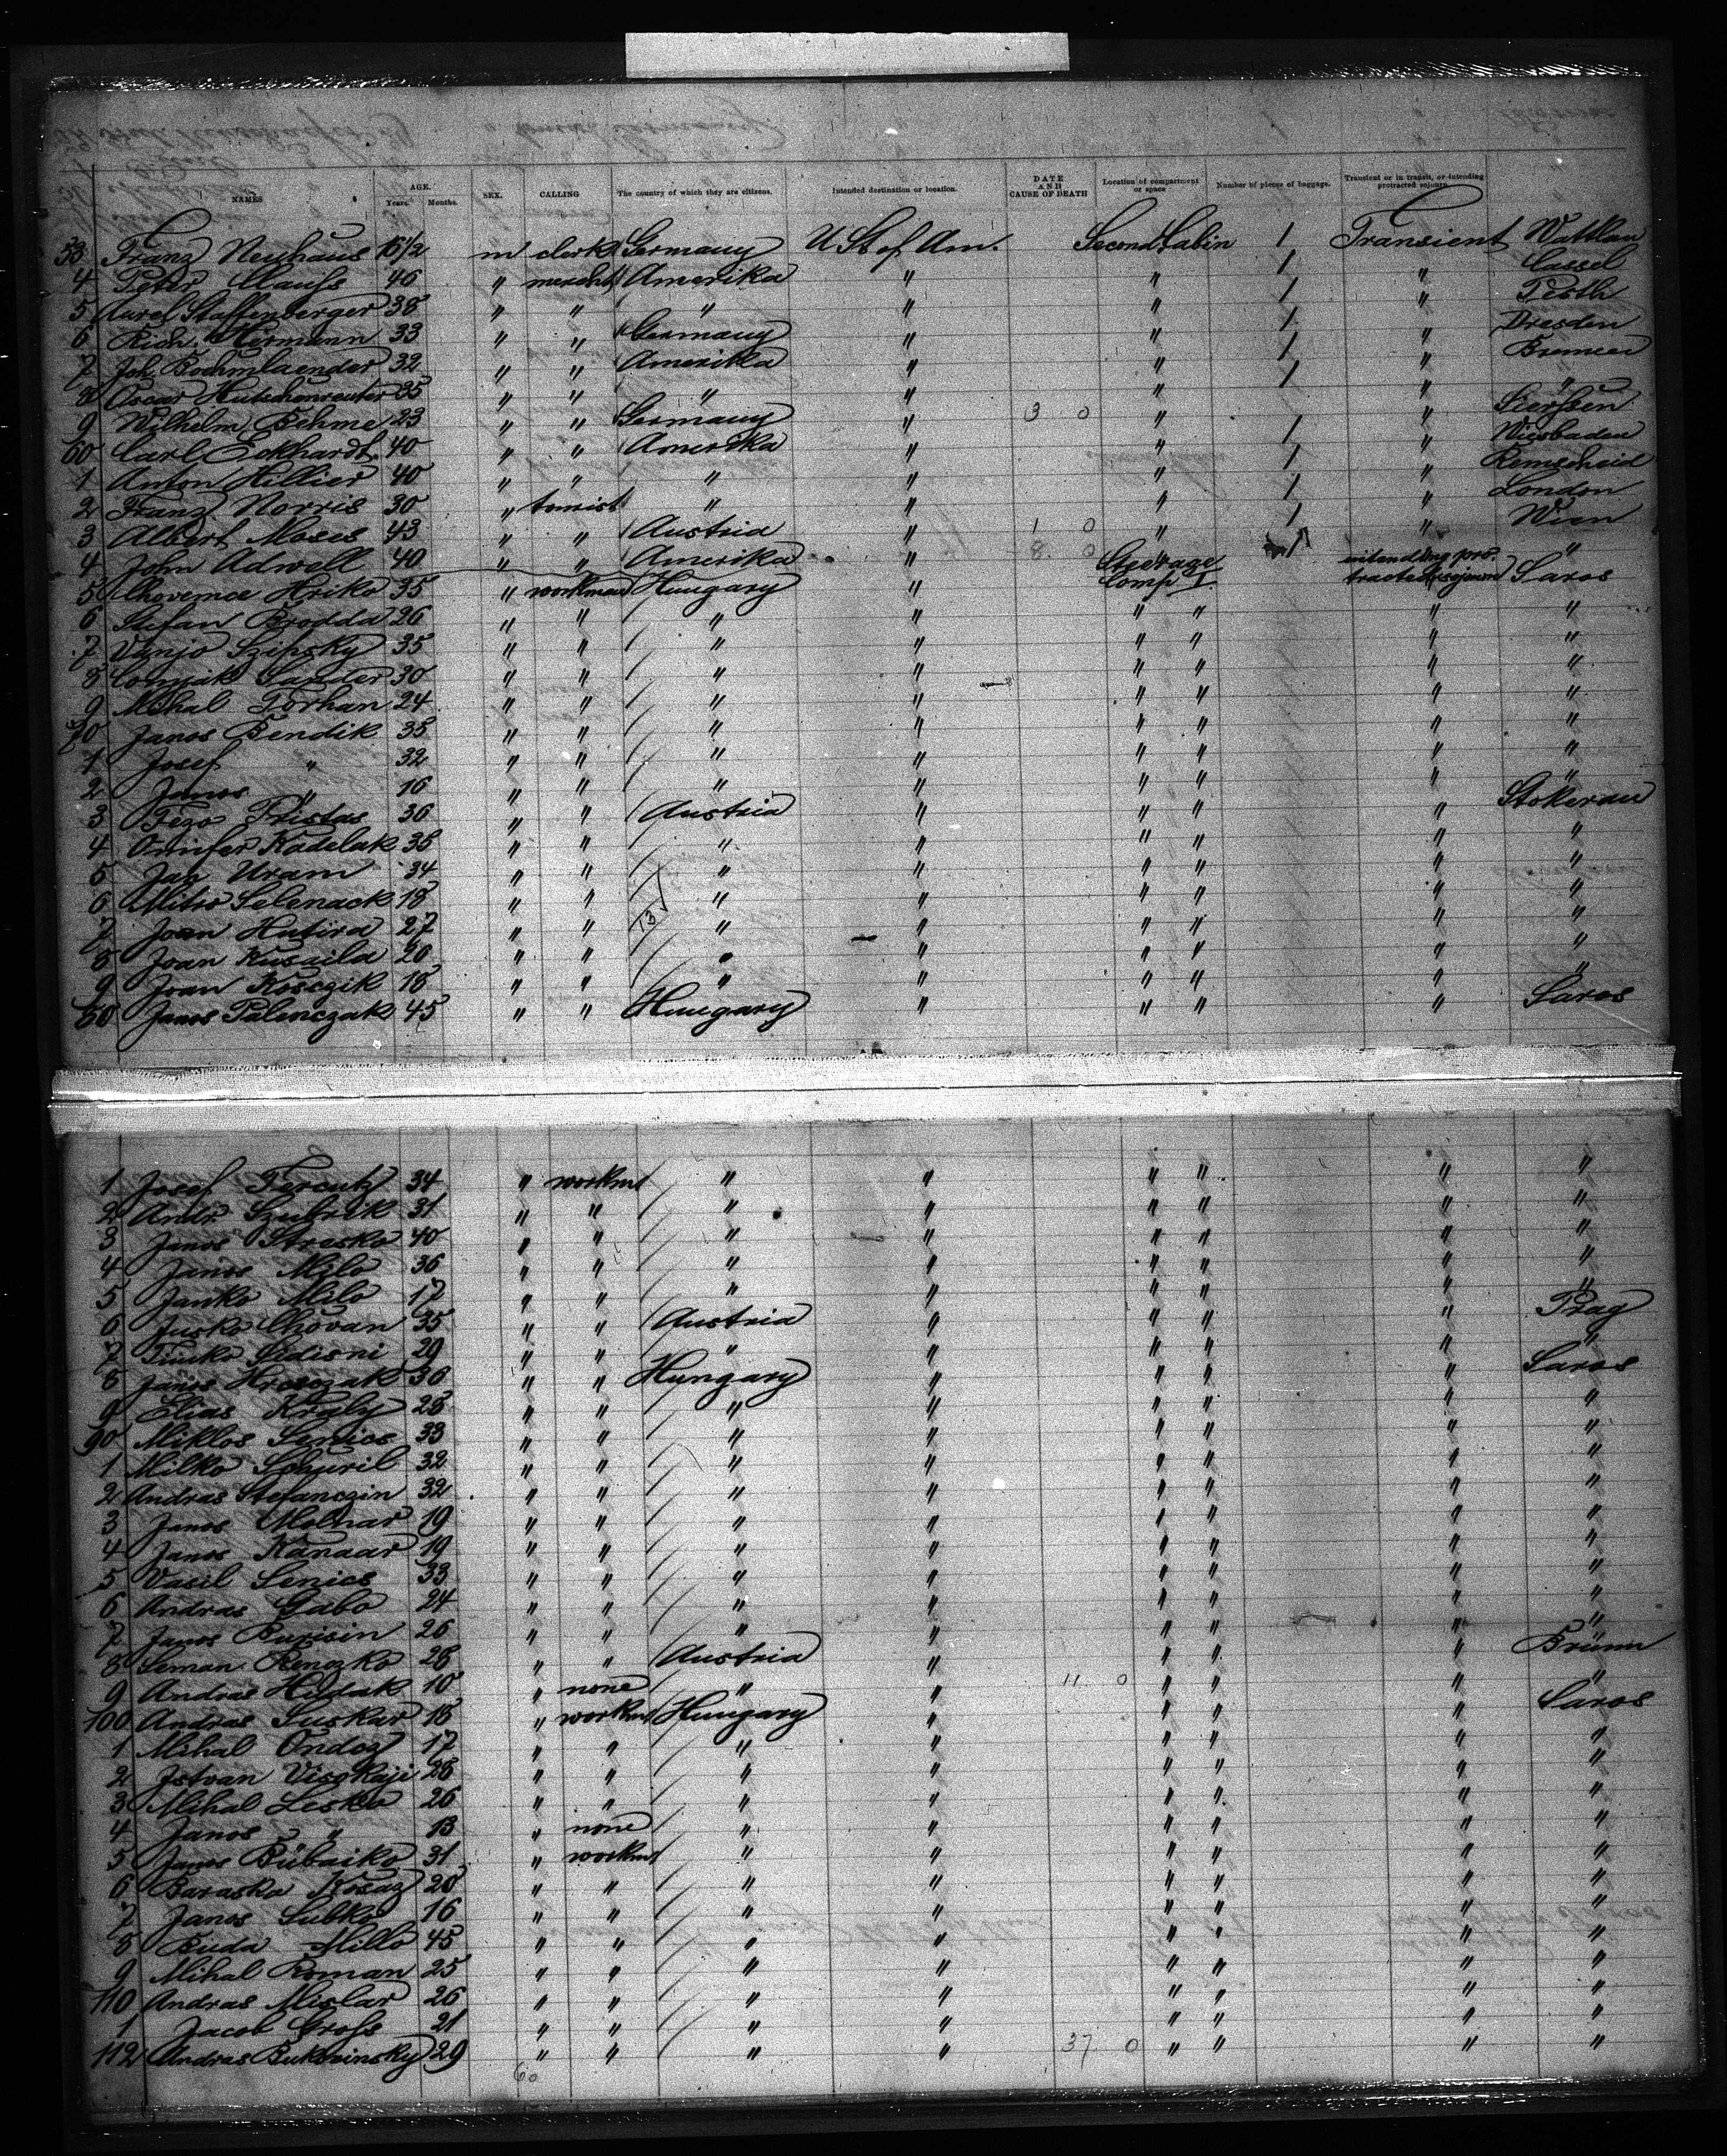 NAMES AGE. Years. Months. SEX. CALLING The country of which they are citizens. Intended destination or location. DATE AND CAUSE OF DEATH Location of compartment or space Number of pieces of baggage. Transient or in transit, or intending protracted sojourn
53 Franz Neuhaus 16 1/2 m clerk Germany U St of Am. Second Cabin 1 Transient
4 Peter Clauss 46 " mercht Amerika " " 1 " Cassel
5 Aurel Staffenberger 38 " " " " " 1 " Pesth
6 Rich. Hermann 33 " " Germany " " 1 " Dresden
7 Joh. Boehmlaender 32 " " Amerika " " 1 " Bremen
8 Oscar Hutschenreuter 35 " " " " " 1 " "
9 Wilhelm Behme 23 " " Germany " 3 0 " "
60 Carl Eckhardt 40 " " Amerika " " 1 " Wiesbaden
1 Anton Hillier 40 " " " " " 1 " Remscheid
2 Franz Norris 30 " tourist " " " 1 " London
3 Albert Moses 43 " " Austria " 1 0 " 1 " Wien
4 John Adwell 40 " " Amerika " 8 0 " 1 "
5 Chovemce Hriko 35 " workman Hungary " Steerage Comp I. intending protracted sejourn Saros
6 Stefan Brodda 26 " " " " " " " "
7 Vanjo Szipsky 35 " " " " " " " "
8 Sander 30 " " " " " " " "
9 Mihal Torhan 24 " " " " " " " "
70 Janos Bendik 35 " " " " " " " "
1 Josef " 32 " " " " " " " "
2 Janos " 16 " " " " " " " "
3 Fezo Pristas 36 " " Austria " " " " Stokerau
4 Kadelak 38 " " " " " " " "
5 Jan Uram 34 " " " " " " " "
6 Mitro Selenack 18 " " " " " " " "
7 Joan Hutira 27 " " 13 " " " " " "
8 Joan Kusaila 20 " " " " " " " "
9 Joan Kosczik 18 " " " " " " " "
80 Janos Palenczak 45 " " Hungary " " " " Saros
1 Josef 34 " workmt " " " " " "
2 Andr. Szubrik 31 " " " " " " " "
3 Janos Strasko 40 " " " " " " " "
4 Janos Milo 36 " " " " " " " "
5 Janko Milo 17 " " " " " " " "
6 Jusko Chovan 35 " " Austria " " " " Prag
7 Timko 29 " " " " " " " "
8 Janos Hrosczak 30 " " Hungary " " " " Saros
9 Elias Kraly 28 " " " " " " " "
90 Miklos Senics 33 " " " " " " " "
1 Milko 32 " " " " " " " "
2 Andras Stefanczin 32 " " " " " " " "
3 Janos Molnar 19 " " " " " " " "
4 Janos Kanaar 19 " " " " " " " "
5 Vasil Senics 33 " " " " " " " "
6 Andras Gabo 24 " " " " " " " "
7 Janos Burisin 26 " " " " " " " "
8 Seman Renczko 28 " " Austria " " " " Brünn
9 Andras Hudak 10 " none " " 11 0 " " " "
100 Andras Suskar 18 " workmt Hungary " " " " Saros
1 Mihal Ondoz 17 " " " " " " " "
2 Istvan Viszkaji 28 " " " " " " " "
3 Mihal Leska 26 " " " " " " " "
4 Janos " 13 " none " " " " " "
5 Janos Bübaiko 31 " workmt " " " " " "
6 Baraska 20 " " " " " " " "
7 Janos Subko 16 " " " " " " " "
8 Buda Millo 45 " " " " " " " "
9 Mihal Roman 25 " " " " " " " "
110 Andras Mislar 26 " " " " " " " "
1 Jacob Gross 21 " " " " " " " "
112 Andras Bukovinsky 29 " " " " 37 0 " " " "
60